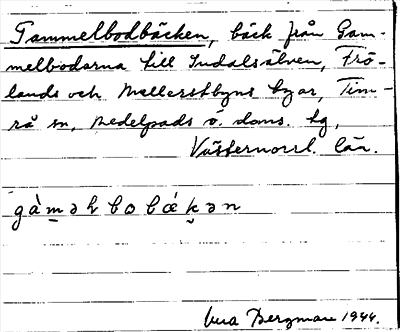 Gammelbodbäcken, bäck från Gam-
melbodarna till Indalsälven, Frö-
lands och Mellerstbyns byar, Tim-
rå sn, Medelpads ö. doms. hg,
Västernorrl. län.
gàm̱əl bo bœ́k̮ən
Vera Bergman 1944.